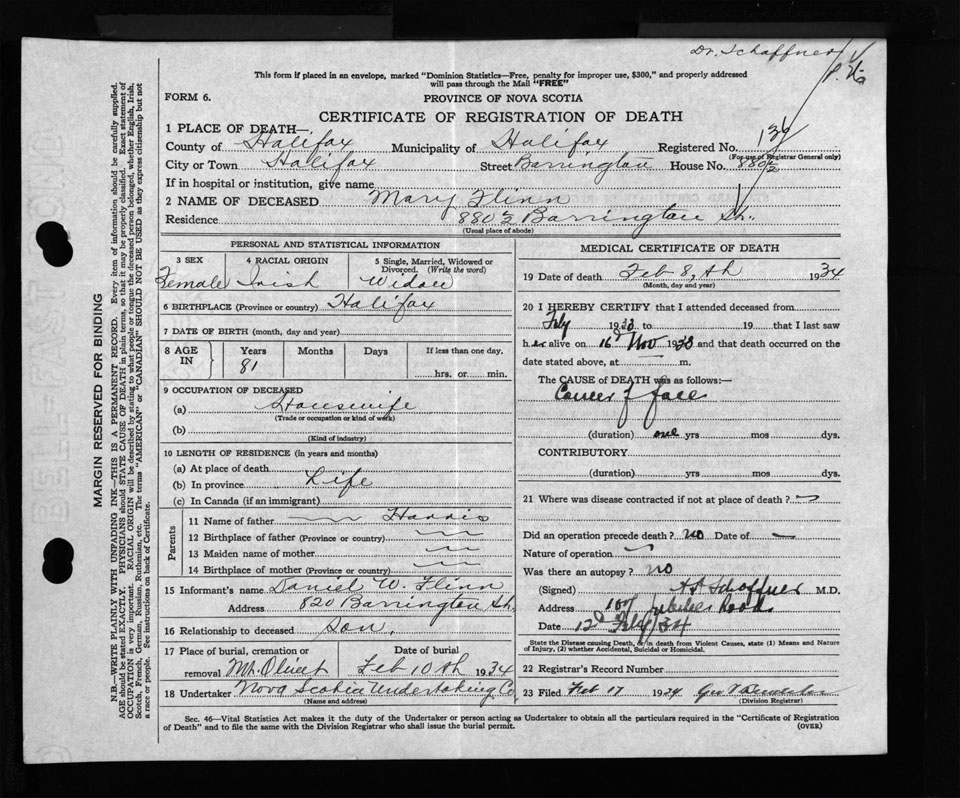 Dr. Schaffner
This form if placed in an envelope, marked "Dominion Statistics—Free, penalty for improper use, $300," and properly addressed
will pass through the Mail "FREE"
FORM 6.
PROVINCE OF NOVA SCOTIA
CERTIFICATE OF REGISTRATION OF DEATH
1 PLACE OF DEATH—
County of Halifax Municipality of Halifax Registered No.
(For use of Registrar General only)
City or Town Halifax Street Barrington House No. 880½
If in hospital or institution, give name
2 NAME OF DECEASED Mary Flinn
Residence 880½ Barrington St.
(Usual place of abode)
PERSONAL AND STATISTICAL INFORMATION
3 SEX 4 RACIAL ORIGIN 5 Single, Married, Widowed or
Divorced. (Write the word)
Female Irish Widow
6 BIRTHPLACE (Province or country) Halifax
7 DATE OF BIRTH (month, day and year)
8 AGE IN Years Months Days If less than one day.
81 hrs. or min.
9 OCCUPATION OF DECEASED
(a) Housewife
(Trade or occupation or kind of work)
(b)
(Kind of industry)
10 LENGTH OF RESIDENCE (in years and months)
(a) At place of death
(b) In province Life
(c) In Canada (if an immigrant)
Parents
11 Name of father Harris
12 Birthplace of father (Province or country)
13 Maiden name of mother
14 Birthplace of mother (Province or Country)
15 Informant's name Daniel W. Flinn
Address 820 Barrington St.
16 Relationship to deceased Son.
17 Place of burial, cremation or Date of burial
removal Mt. Olivet Feb 10th 1934
18 Undertaker Nova Scotia Undertaking Co
(Name and address)
MEDICAL CERTIFICATE OF DEATH
19 Date of death Feb 8,th 1934
(Month, day and year)
20 I HEREBY CERTIFY that I attended deceased from
1933 to 19 that I last saw
her alive on 16 Nov 1933 and that death occurred on the
date stated above, at m.
The CAUSE of DEATH was as follows:—
Cancer of face
(duration) one yrs mos dys.
CONTRIBUTORY
(duration) yrs mos dys.
21 Where was disease contracted if not at place of death?
Did an operation precede death? no Date of —
Nature of operation
Was there an autopsy? no
(Signed) Schaffner M.D.
Address Jubilee Road
Date 12 Feb/34
State the Disease causing Death, or in death from Violent Causes, state (1) Means and Nature
of Injury, (2) whether Accidental, Suicidal or Homicidal.
22 Registrar's Record Number
23 Filed Feb 17 1934
(Division Registrar)
Sec. 46—Vital Statistics Act makes it the duty of the Undertaker or person acting as Undertaker to obtain all the particulars required in the "Certificate of Registration
of Death" and to file the same with the Division Registrar who shall issue the burial permit. (OVER)
MARGIN RESERVED FOR BINDING
N.B.—WRITE PLAINLY WITH UNFADING INK—THIS IS A PERMANENT RECORD. Every item of information should be carefully supplied.
AGE should be stated EXACTLY. PHYSICIANS should STATE CAUSE OF DEATH in plain terms, so that it may be properly classified. Exact statement of
OCCUPATION is very important. RACIAL ORIGIN will be described by stating to what people or tongue the deceased person belonged, whether English, Irish,
Scotch, French, German, Russian, Ruthenian, etc. The terms "AMERICAN" or "CANADIAN" SHOULD NOT BE USED as they express citizenship but not
a race or people. See instructions on back of Certificate.